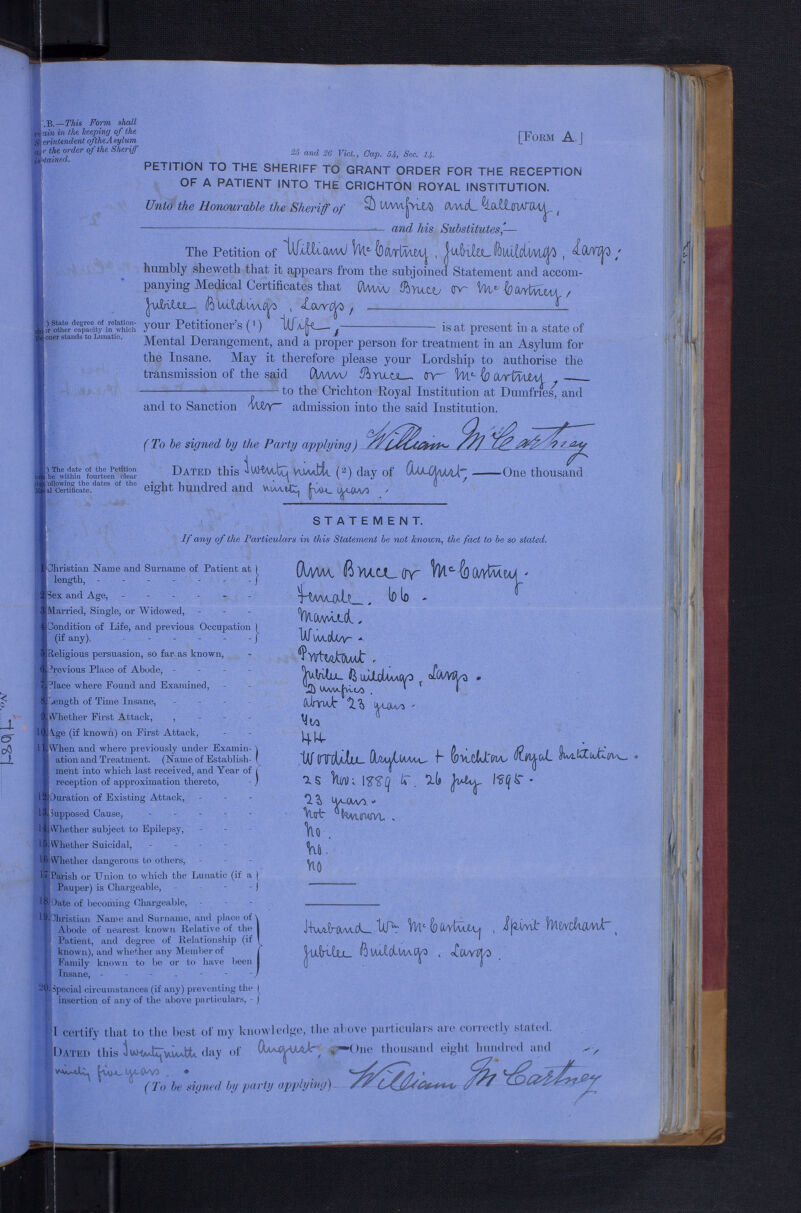 .B.—This Form shall
ain in the keeping of the
erintendent of the Asylum
r the order of the Sheriff
tained.
[FORM A.]
25 and 26 Vict., Cap. 54, Sec. 14.
PETITION TO THE SHERIFF TO GRANT ORDER FOR THE RECEPTION
OF A PATIENT INTO THE CRICHTON ROYAL INSTITUTION.
Unto the Honourable the Sheriff of Dumfries and Galloway,
and his Substitutes,—
The Petition of William McCartney, Jubilee Buildings, Largs,
humbly sheweth that it appears from the subjoined Statement and accom-
panying Medical Certificates that Ann Bruce or McCartney,
Jubilee Buildings, Largs,
) State degree of relation-
or other capacity in which
oner stands to Lunatic.
your Petitioner's (1) Wife, is at present in a state of
Mental Derangement, and a proper person for treatment in an Asylum for
the Insane. May it therefore please your Lordship to authorise the
transmission of the said Ann Bruce or McCartney,
to the Crichton Royal Institution at Dumfries, and
and to Sanction her admission into the said Institution.
(To be signed by the Party applying) William McCartney
) The date of the Petition
be within fourteen clear
following the dates of the
al Certificate.
DATED this Twenty ninth (2) day of August, —One thousand
eight hundred and ninety five years.
STATEMENT.
If any of the Particulars in this Statement be not known, the fact to be so stated.
1 Christian Name and Surname of Patient at length, - Ann Bruce or McCartney.
2 Sex and Age, - Female. 66.
3 Married, Single, or Widowed, - Married.
4 Condition of Life, and previous Occupation (if any). - Winder.
5 Religious persuasion, so far as known, - Protestant.
6 Previous Place of Abode, - Jubilee Buildings, Largs.
7 Place where Found and Examined, - Dumfries.
8 Length of Time Insane, - about 23 years.
9 Whether First Attack, - Yes
10 Age (if known) on First Attack, - 44
11 When and where previously under Examin-
ation and Treatment. (Name of Establish- Woodilee Asylum & Crichton Royal Institution.
ment into which last received, and Year of
reception or approximation thereto, - 25 Nov: 1889 to 26 July 1895.
12 Duration of Existing Attack, - 23 years.
13 Supposed Cause, - Not known.
14 Whether subject to Epilepsy, - No.
15 Whether Suicidal, - No.
16 Whether dangerous to others, - No
17 Parish or Union to which the Lunatic (if a
Pauper) is Chargeable, -
18 Date of becoming Chargeable, -
19 Christian Name and Surname, and place of
Abode of nearest known Relative of the Husband Wm McCartney, Spirit Merchant,
Patient, and degree of Relationship (if
known), and whether any Member of Jubilee Buildings, Largs.
Family known to be or to have been
Insane, -
20 Special circumstances (if any) preventing the
insertion of any of the above particulars, -
I certify that to the best of my knowledge, the above particulars are correctly stated.
DATED this Twenty ninth day of August, —One thousand eight hundred and
ninety five years.
(To be signed by party applying) William McCartney